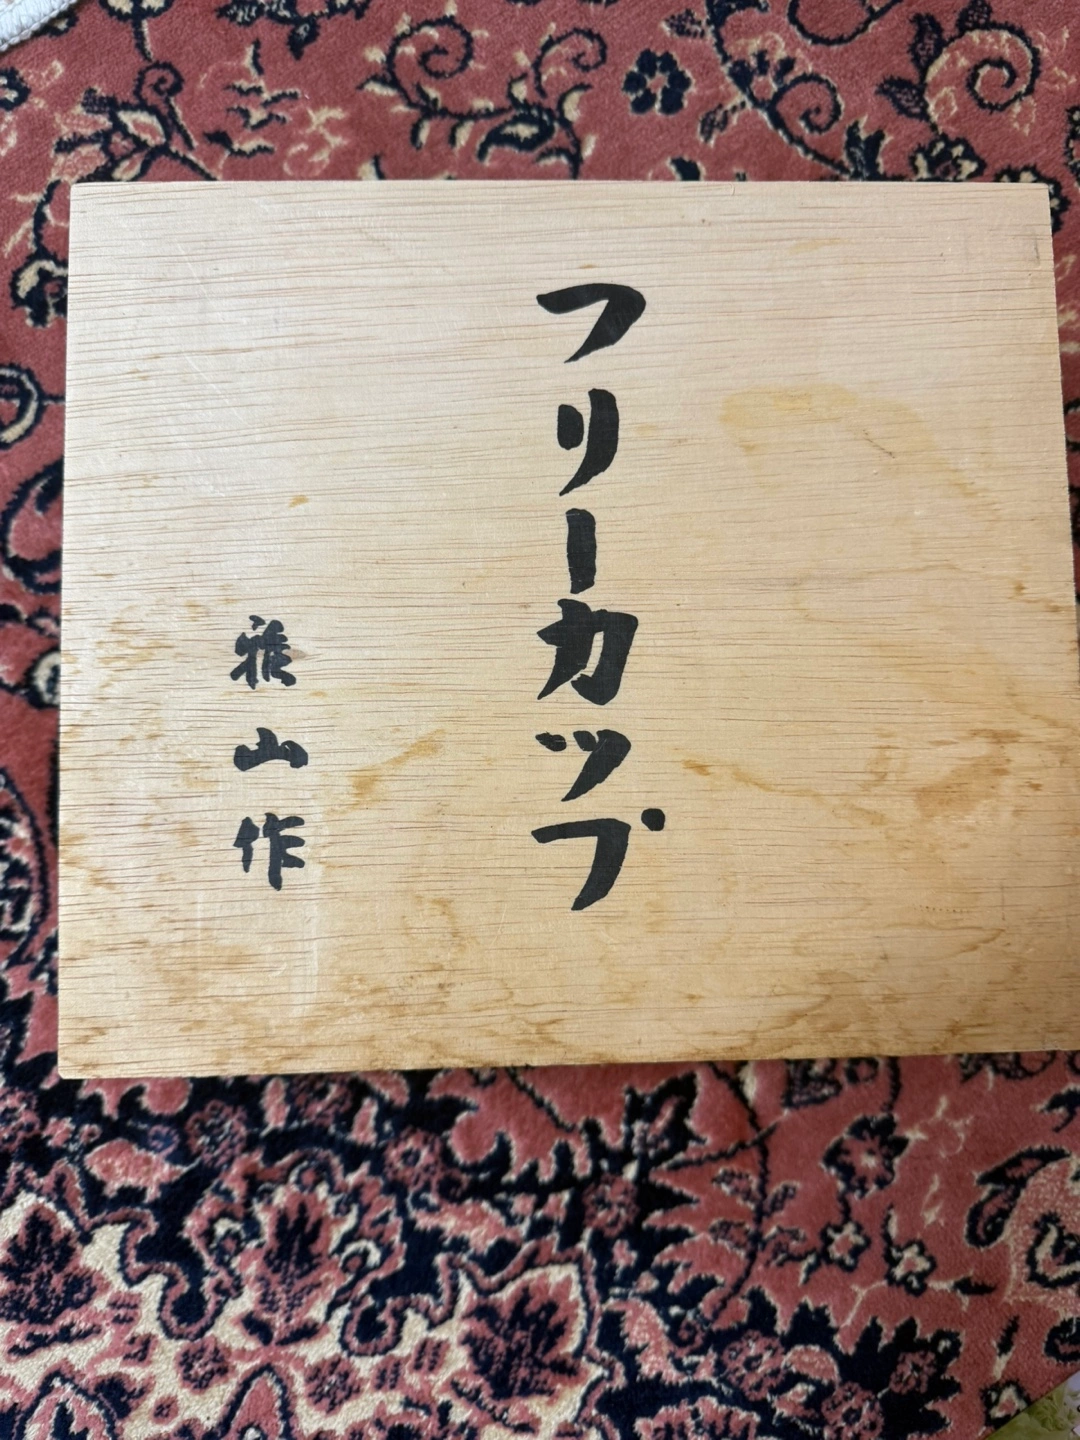 フリーカップ
雅山作